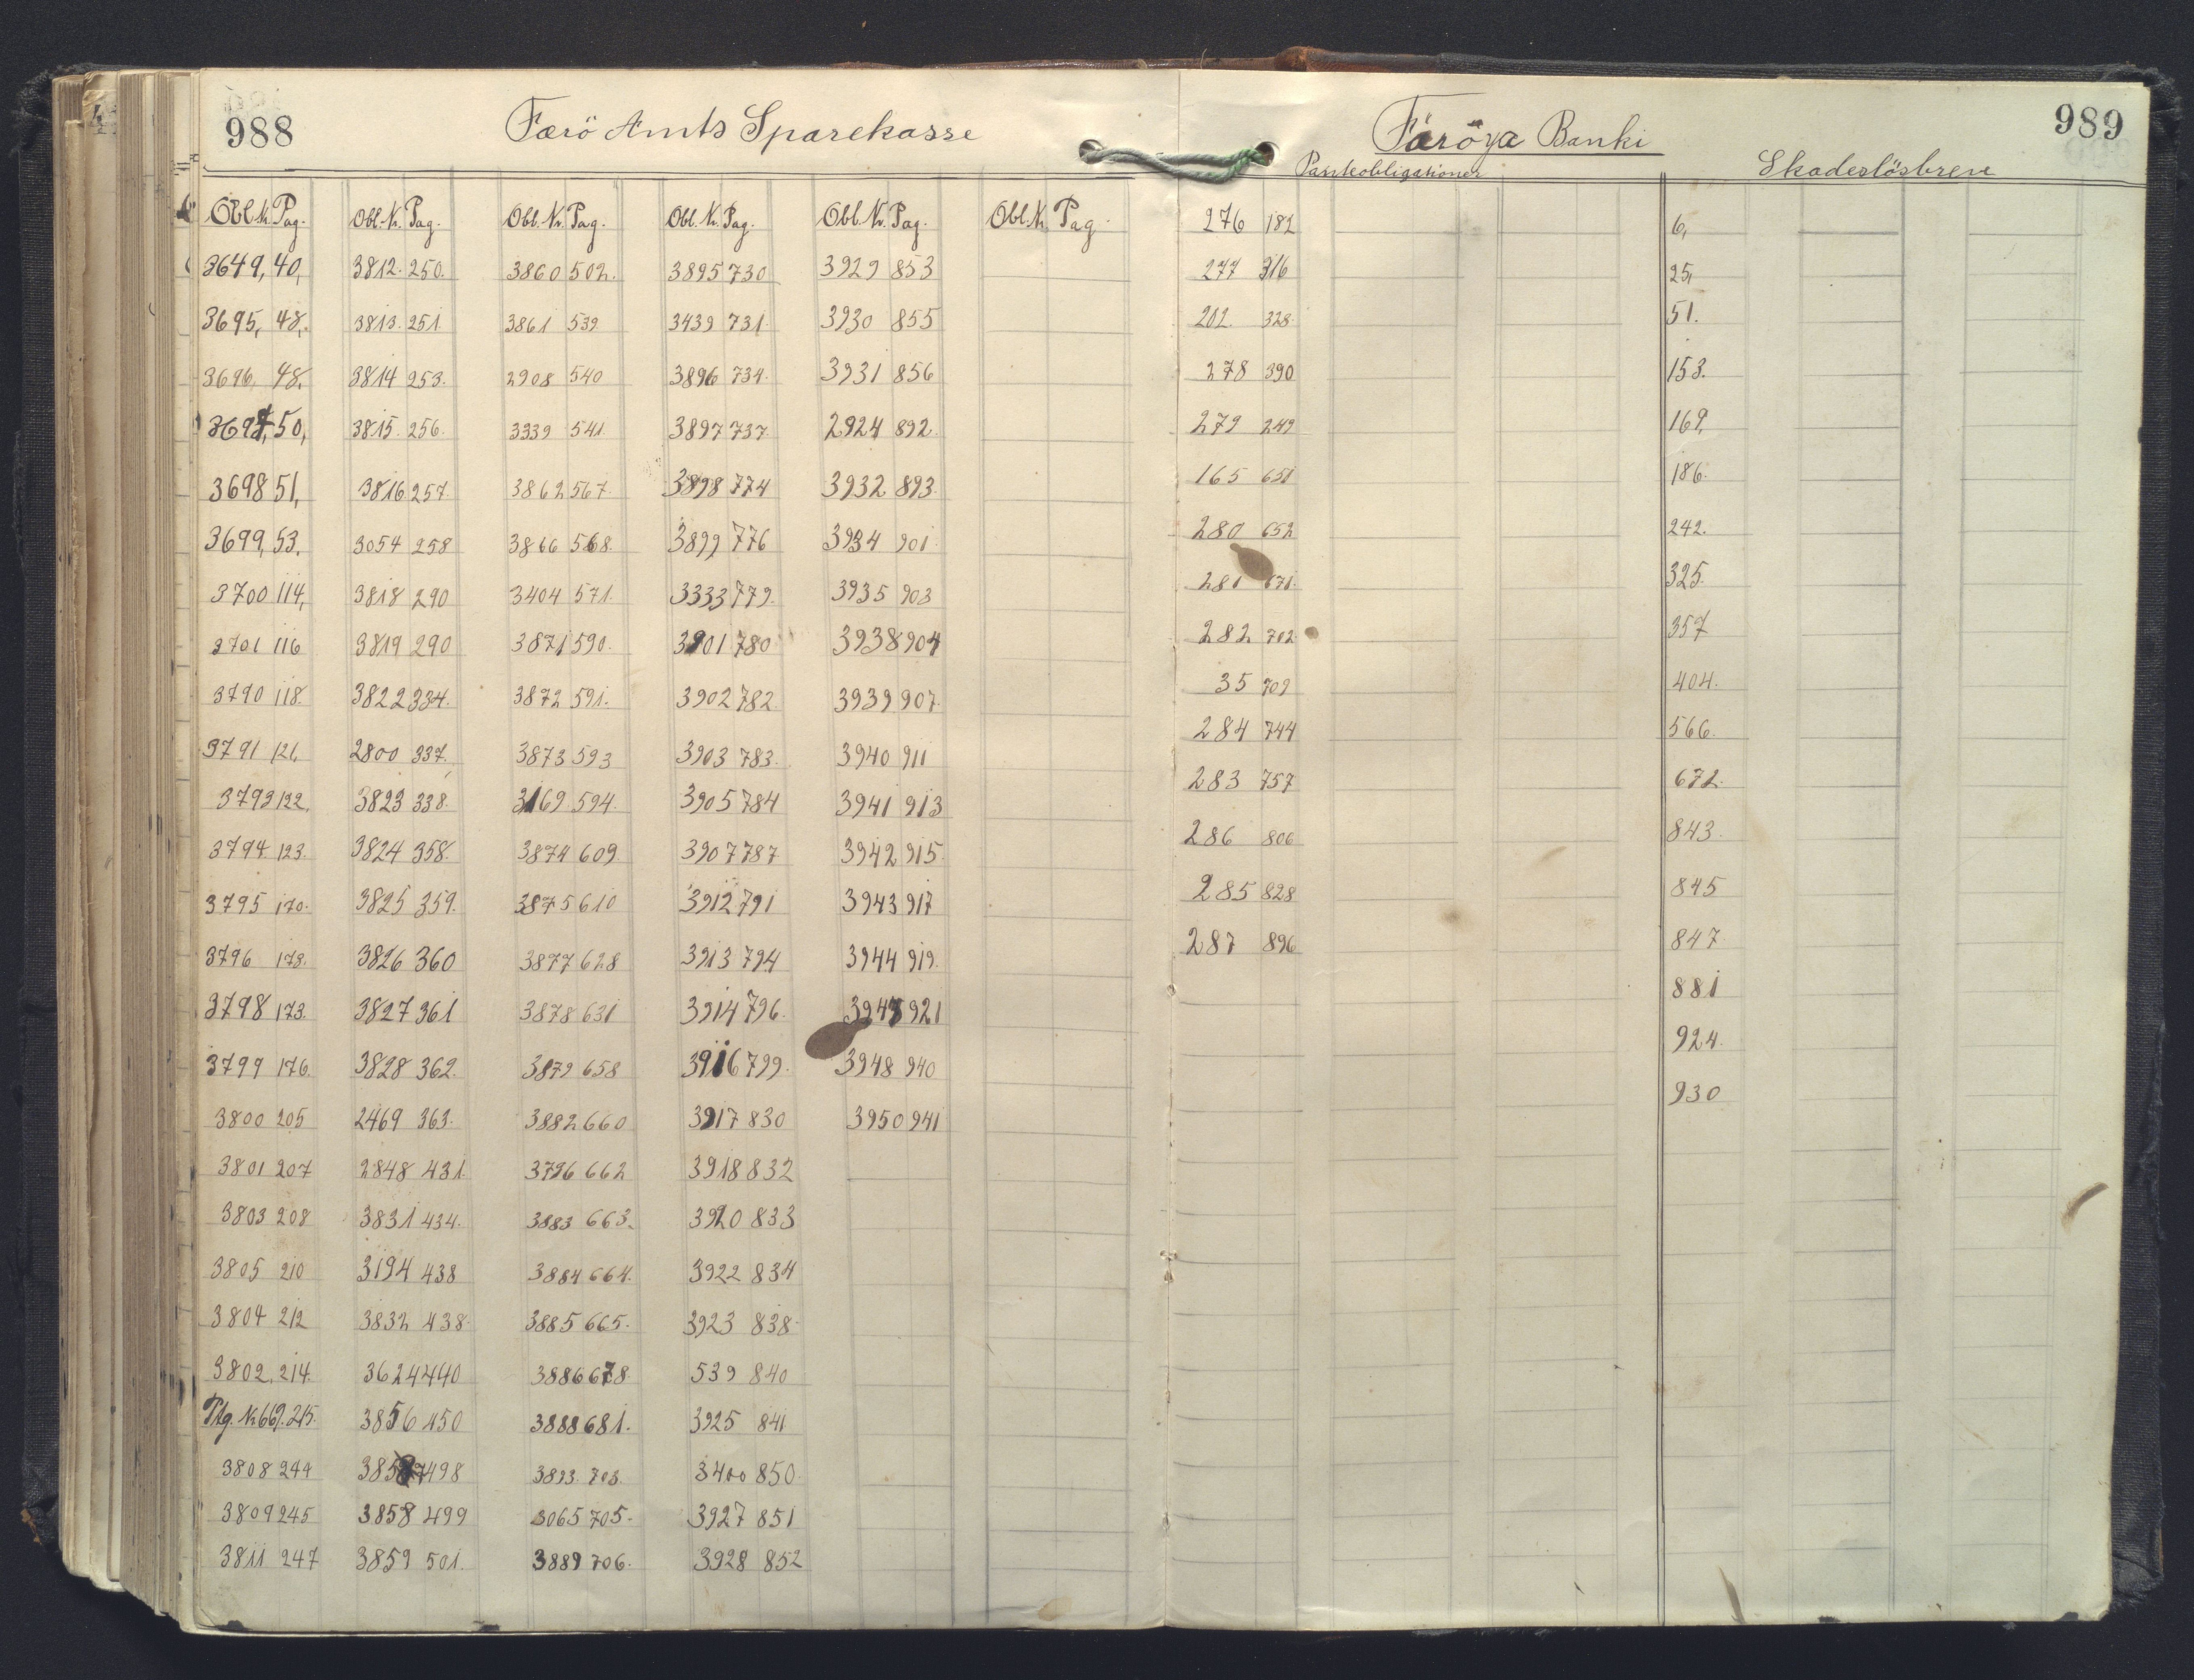 988
Færö Amts Sparekasse
Obl. Nr. Pag. Obl. Nr. Pag. Obl. Nr. Pag. Obl. Nr. Pag. Obl. Nr. Pag. Obl. Nr. Pag.
3649, 40, 3812. 250. 3860 502. 3895 730 3929 853
3695, 48, 3813. 251. 3861 539 3439 731. 3930 855
3696, 48, 3814 253. 2908 540 3896 734. 3931 856
3697, 50, 3815. 256. 3339 541. 3897 737. 2924 892.
3698 51, 3816 257. 3862 567. 3898 774 3932 893.
3699, 53, 3054 258 3866 568. 3899 776 3934 901.
3700 114, 3818 290 3404 571. 3333 779. 3935 903
3701 116 3819 290 3871 590. 3901 780 3938 904
3790 118. 3822 334. 3872 591. 3902 782. 3939 907.
3791 121, 2800 337. 3873 593 3903 783. 3940 911
3793 122. 3823 338. 3169 594. 3905 784 3941 913
3794 123. 3824 358. 3874 609. 3907 787 3942 915.
3795 170. 3825 359. 3875 610 3912 791 3943 917
3796 178. 3826 360 3877 628 3913 794 3944 919.
3798 173. 3827 361 3878 631 3914 796. 3945 921
3799 176. 3828 362. 3879 658 3916 799. 3948 940
3800 205 2469 363. 3882 660 3917 830 3950 941
3801 207 2848 431. 3796 662 3918 832
3803 208 3831 434. 3883 663. 3920 833
3805 210 3194 438 3884 664. 3922 834
3804 212 3832 438. 3885 665. 3923 838.
3802. 214. 3624 440 3886 678. 539 840
Ptg. Nr. 669. 215. 3856 450 3888 681. 3925 841
3808 244 3857 498 3893. 703. 3400 850.
3809 245 3858 499 3065 705. 3927 851
3811 247 3859 501. 3889 706. 3928 852
989
Føroya Banki
Panteobligationer
Skadeslösbreve
276 182 6,
277 316 25,
202. 328. 51.
278 390 153.
279 249 169,
165 651 186.
280 652 242.
281 671. 325.
282 702. 357
35 709 404.
284 744 566.
283 757 672.
286 806 843.
285 828 845
287 896 847
881
924.
930